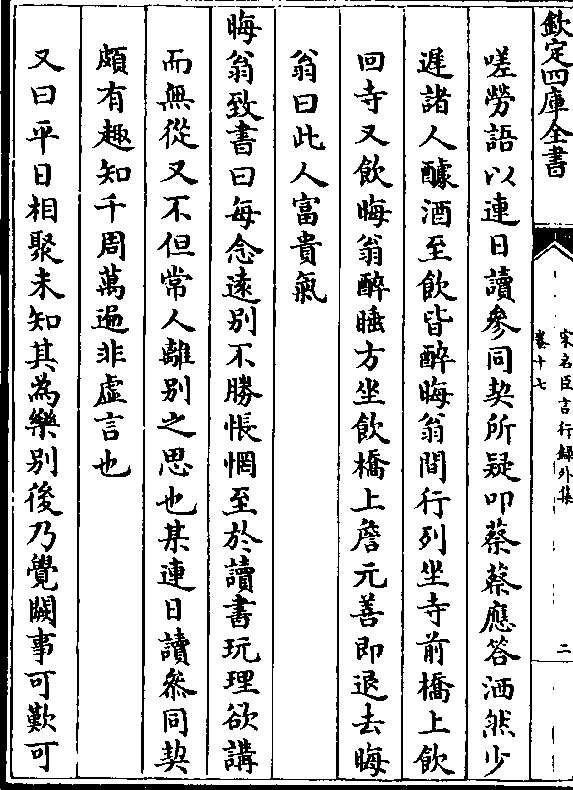 欽定四庫全書
宋名臣言行録外集
卷十七
二
嗟勞語以連日讀參同契所疑叩蔡蔡應答洒然少
遲諸人醵酒至飲皆醉晦翁間行列坐寺前橋上飲
回寺又飲晦翁醉睡方坐飲橋上詹元善即退去晦
翁曰此人富貴氣
晦翁致書曰每念逺别不勝悵惘至於讀書玩理欲講
而無從又不但常人離别之思也某連日讀叅同契
頗有趣知千周萬遍非虚言也
又曰平日相聚未知其為樂别後乃覺闕事可歎可